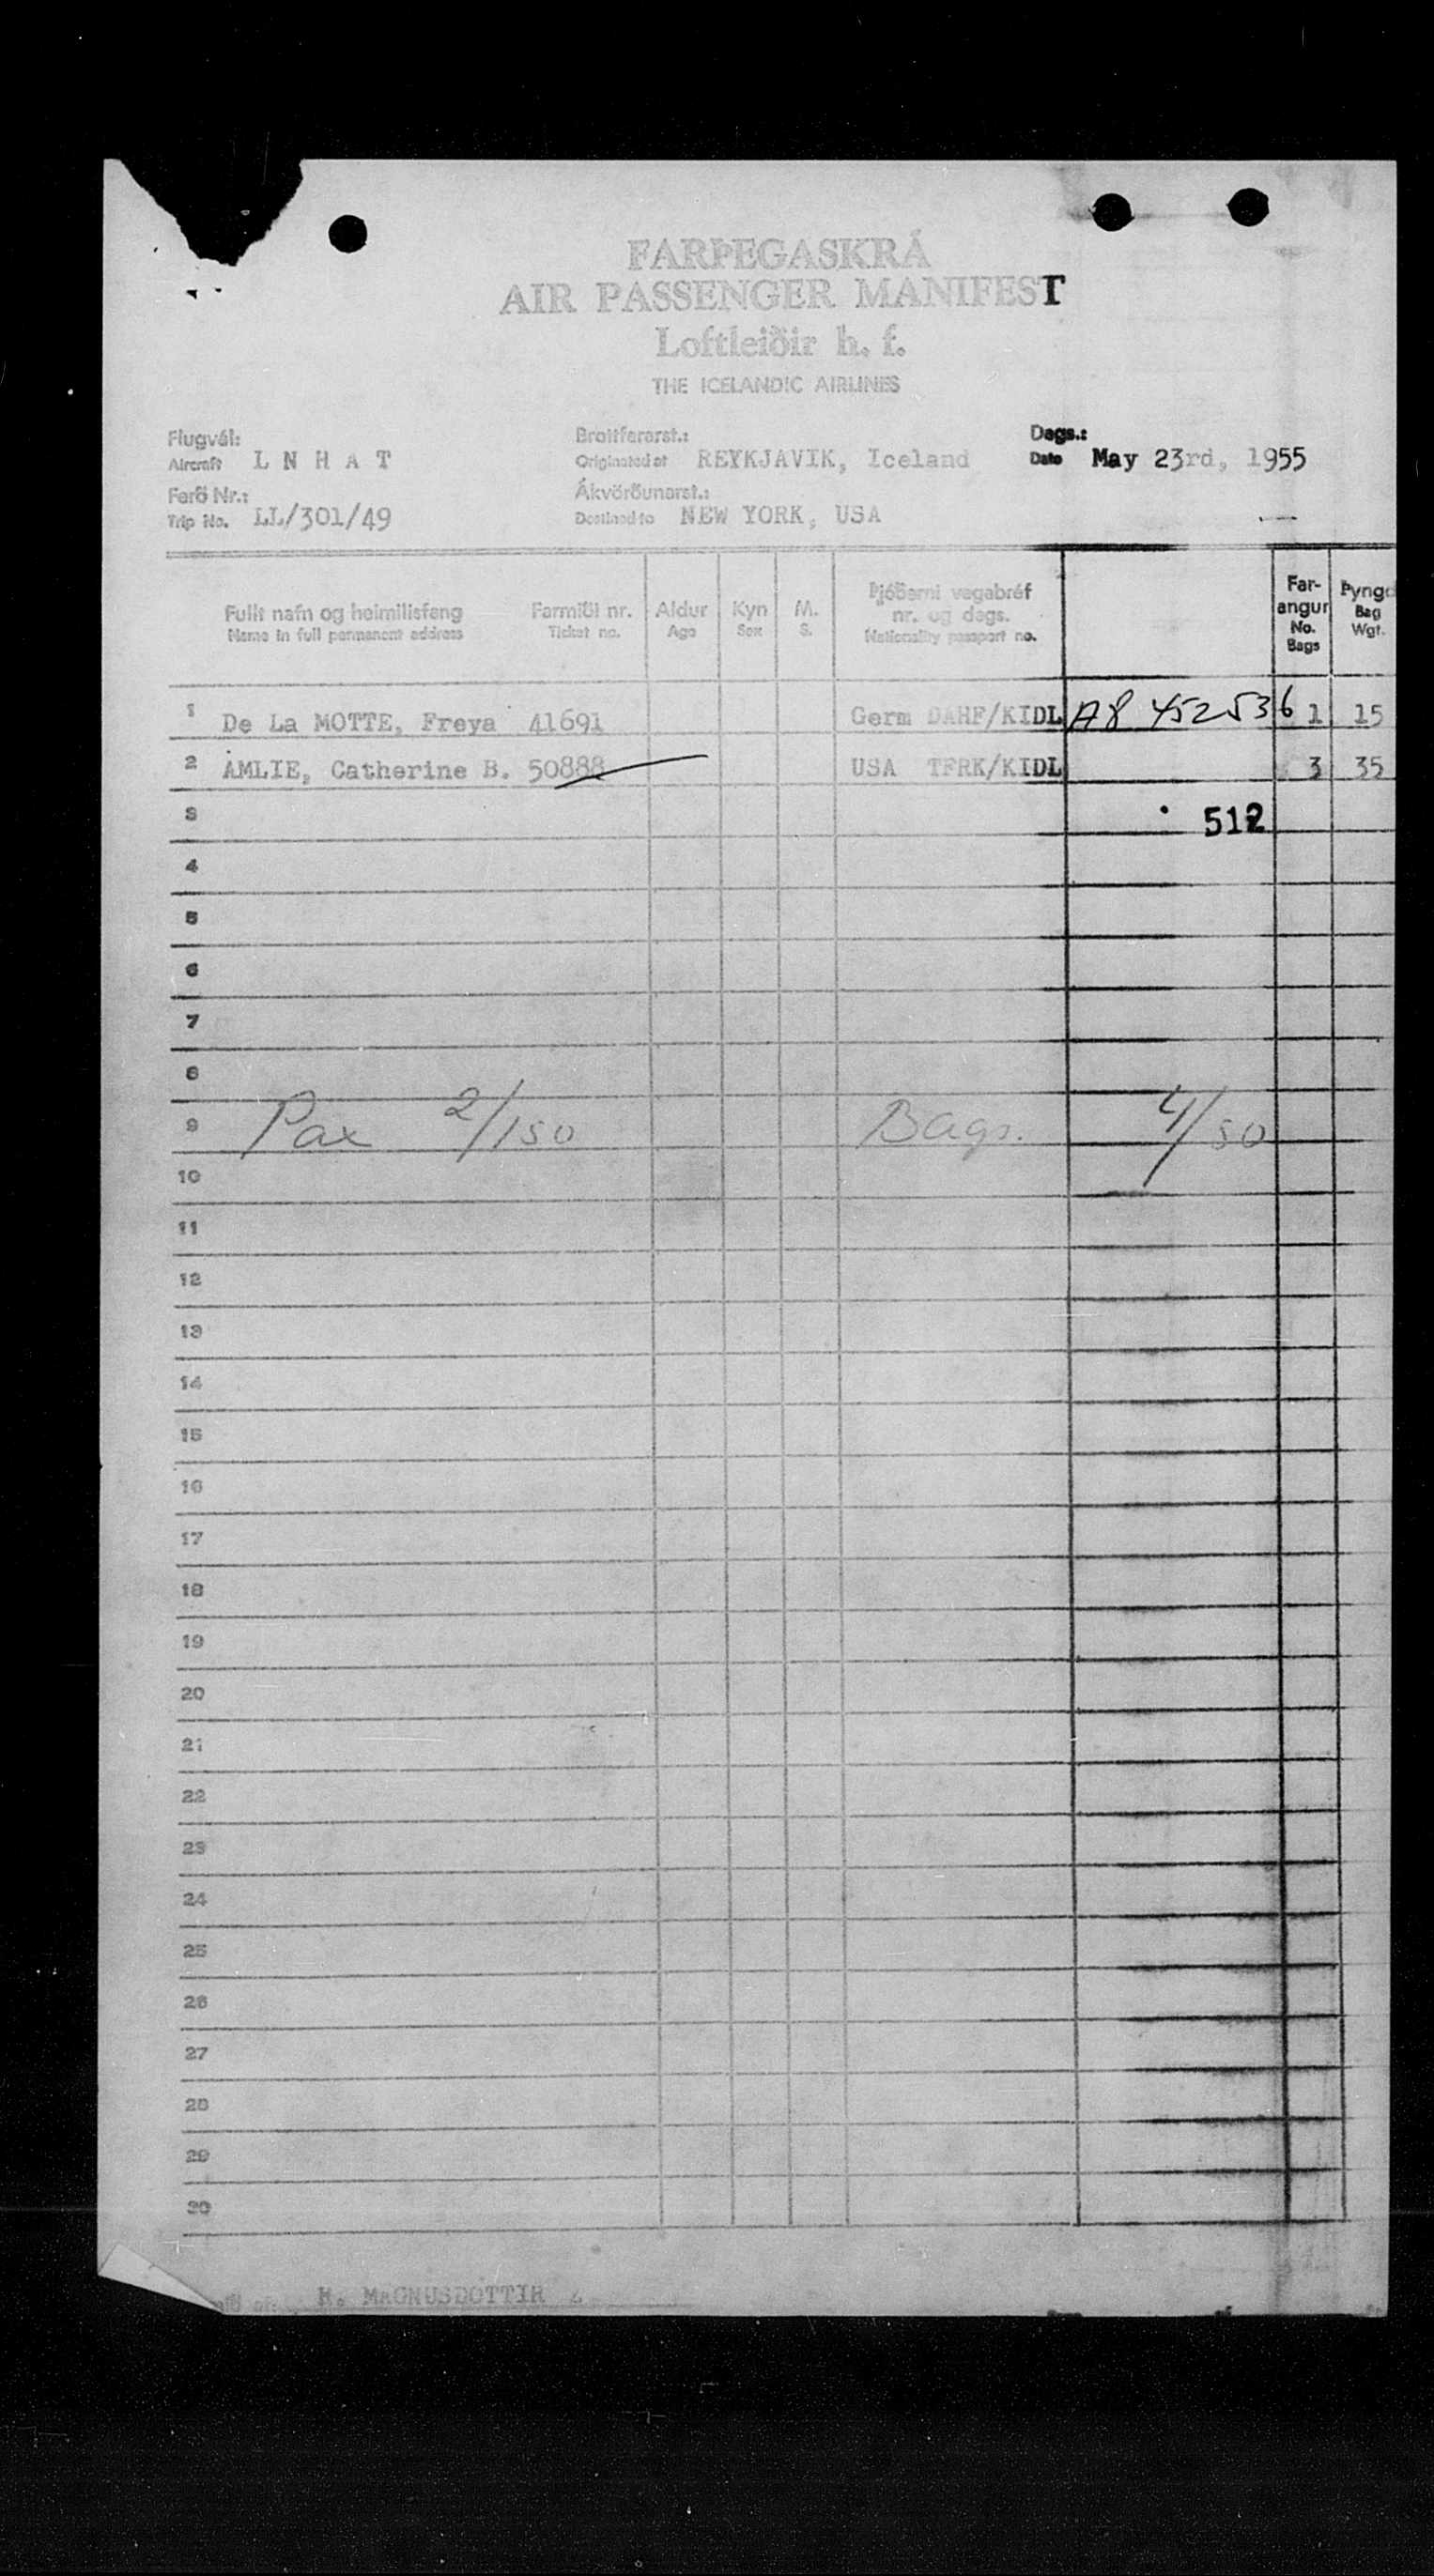 FARÞEGASKRÁ
AIR PASSENGER MANIFEST
Loftleiðir h. f.
THE ICELANDIC AIRLINES
Flugvél:
Aircraft L N H A T
Ferð Nr.:
Trip No. LL/301/49
Brottfararst.:
Originated at REYKJAVIK, Iceland
Ákvörðunarst.:
Destined to NEW YORK, USA
Dags.:
Date May 23rd, 1955
Fullt nafn og heimilisfang
Name in full permanent address
Farmiði nr.
Ticket no.
Aldur
Age
Kyn
Sex
M.
S.
Þjóðerni vegabréf
nr. og dags.
Nationality passport no.
Far-
angur
No.
Bags
Þyngd
Bag
Wgt.
1 De La MOTTE, Freya 41691 Germ DAHF/KIDL A8 452536 1 15
2 AMLIE, Catherine B. 50888 USA TFRK/KIDL 3 35
3 512
4
5
6
7
8
9 Pax 2/150 Bags. 4/50
10
11
12
13
14
15
16
17
18
19
20
21
22
23
24
25
26
27
28
29
30
H. MAGNUSDOTTIR